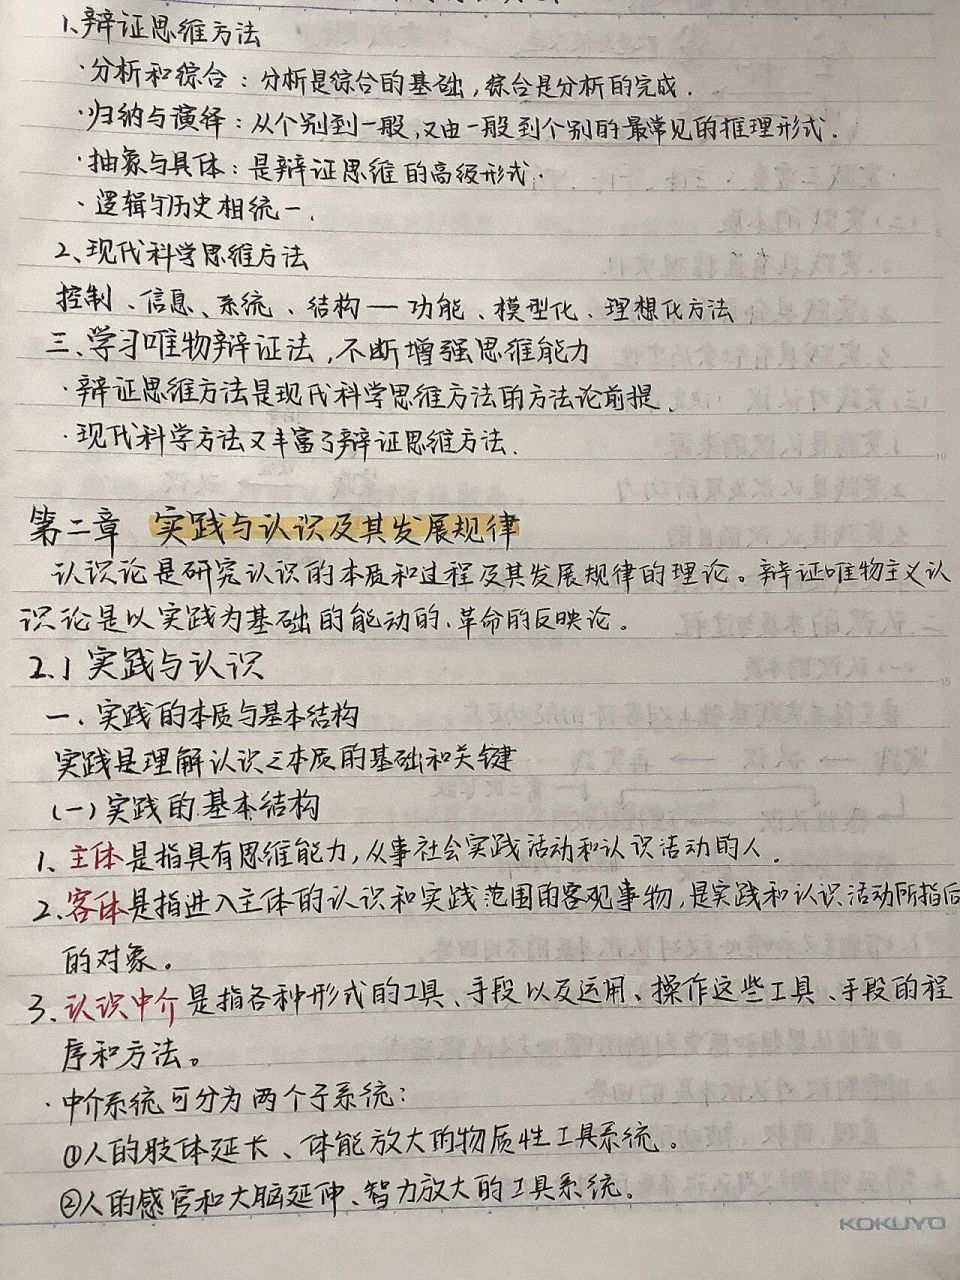 1.辩证思维方法
·分析和综合:分析是综合的基础,综合是分析的完成.
·归纳与演绎:从个别到一般,又由一般到个别的最常见的推理形式.
·抽象与具体:是辩证思维的高级形式.
·逻辑与历史相统一.
2、现代科学思维方法
控制、信息、系统、结构—功能、模型化、理想化方法
三、学习唯物辩证法,不断增强思维能力
·辩证思维方法是现代科学思维方法的方法论前提.
·现代科学方法又丰富了辩证思维方法.
第二章 实践与认识及其发展规律
认识论是研究认识的本质和过程及其发展规律的理论。辩证唯物主义认
识论是以实践为基础的能动的、革命的反映论。
2.1 实践与认识
一、实践的本质与基本结构
实践是理解认识之本质的基础和关键
(一)实践的基本结构
1、主体是指具有思维能力,从事社会实践活动和认识活动的人.
2、客体是指进入主体的认识和实践范围的客观事物,是实践和认识活动所指后
的对象。
3、认识中介是指各种形式的工具、手段以及运用、操作这些工具、手段的程
序和方法。
·中介系统可分为两个子系统:
①人的肢体延长、体能放大的物质性工具系统。
②人的感官和大脑延伸、智力放大的工具系统。
KOKUYO